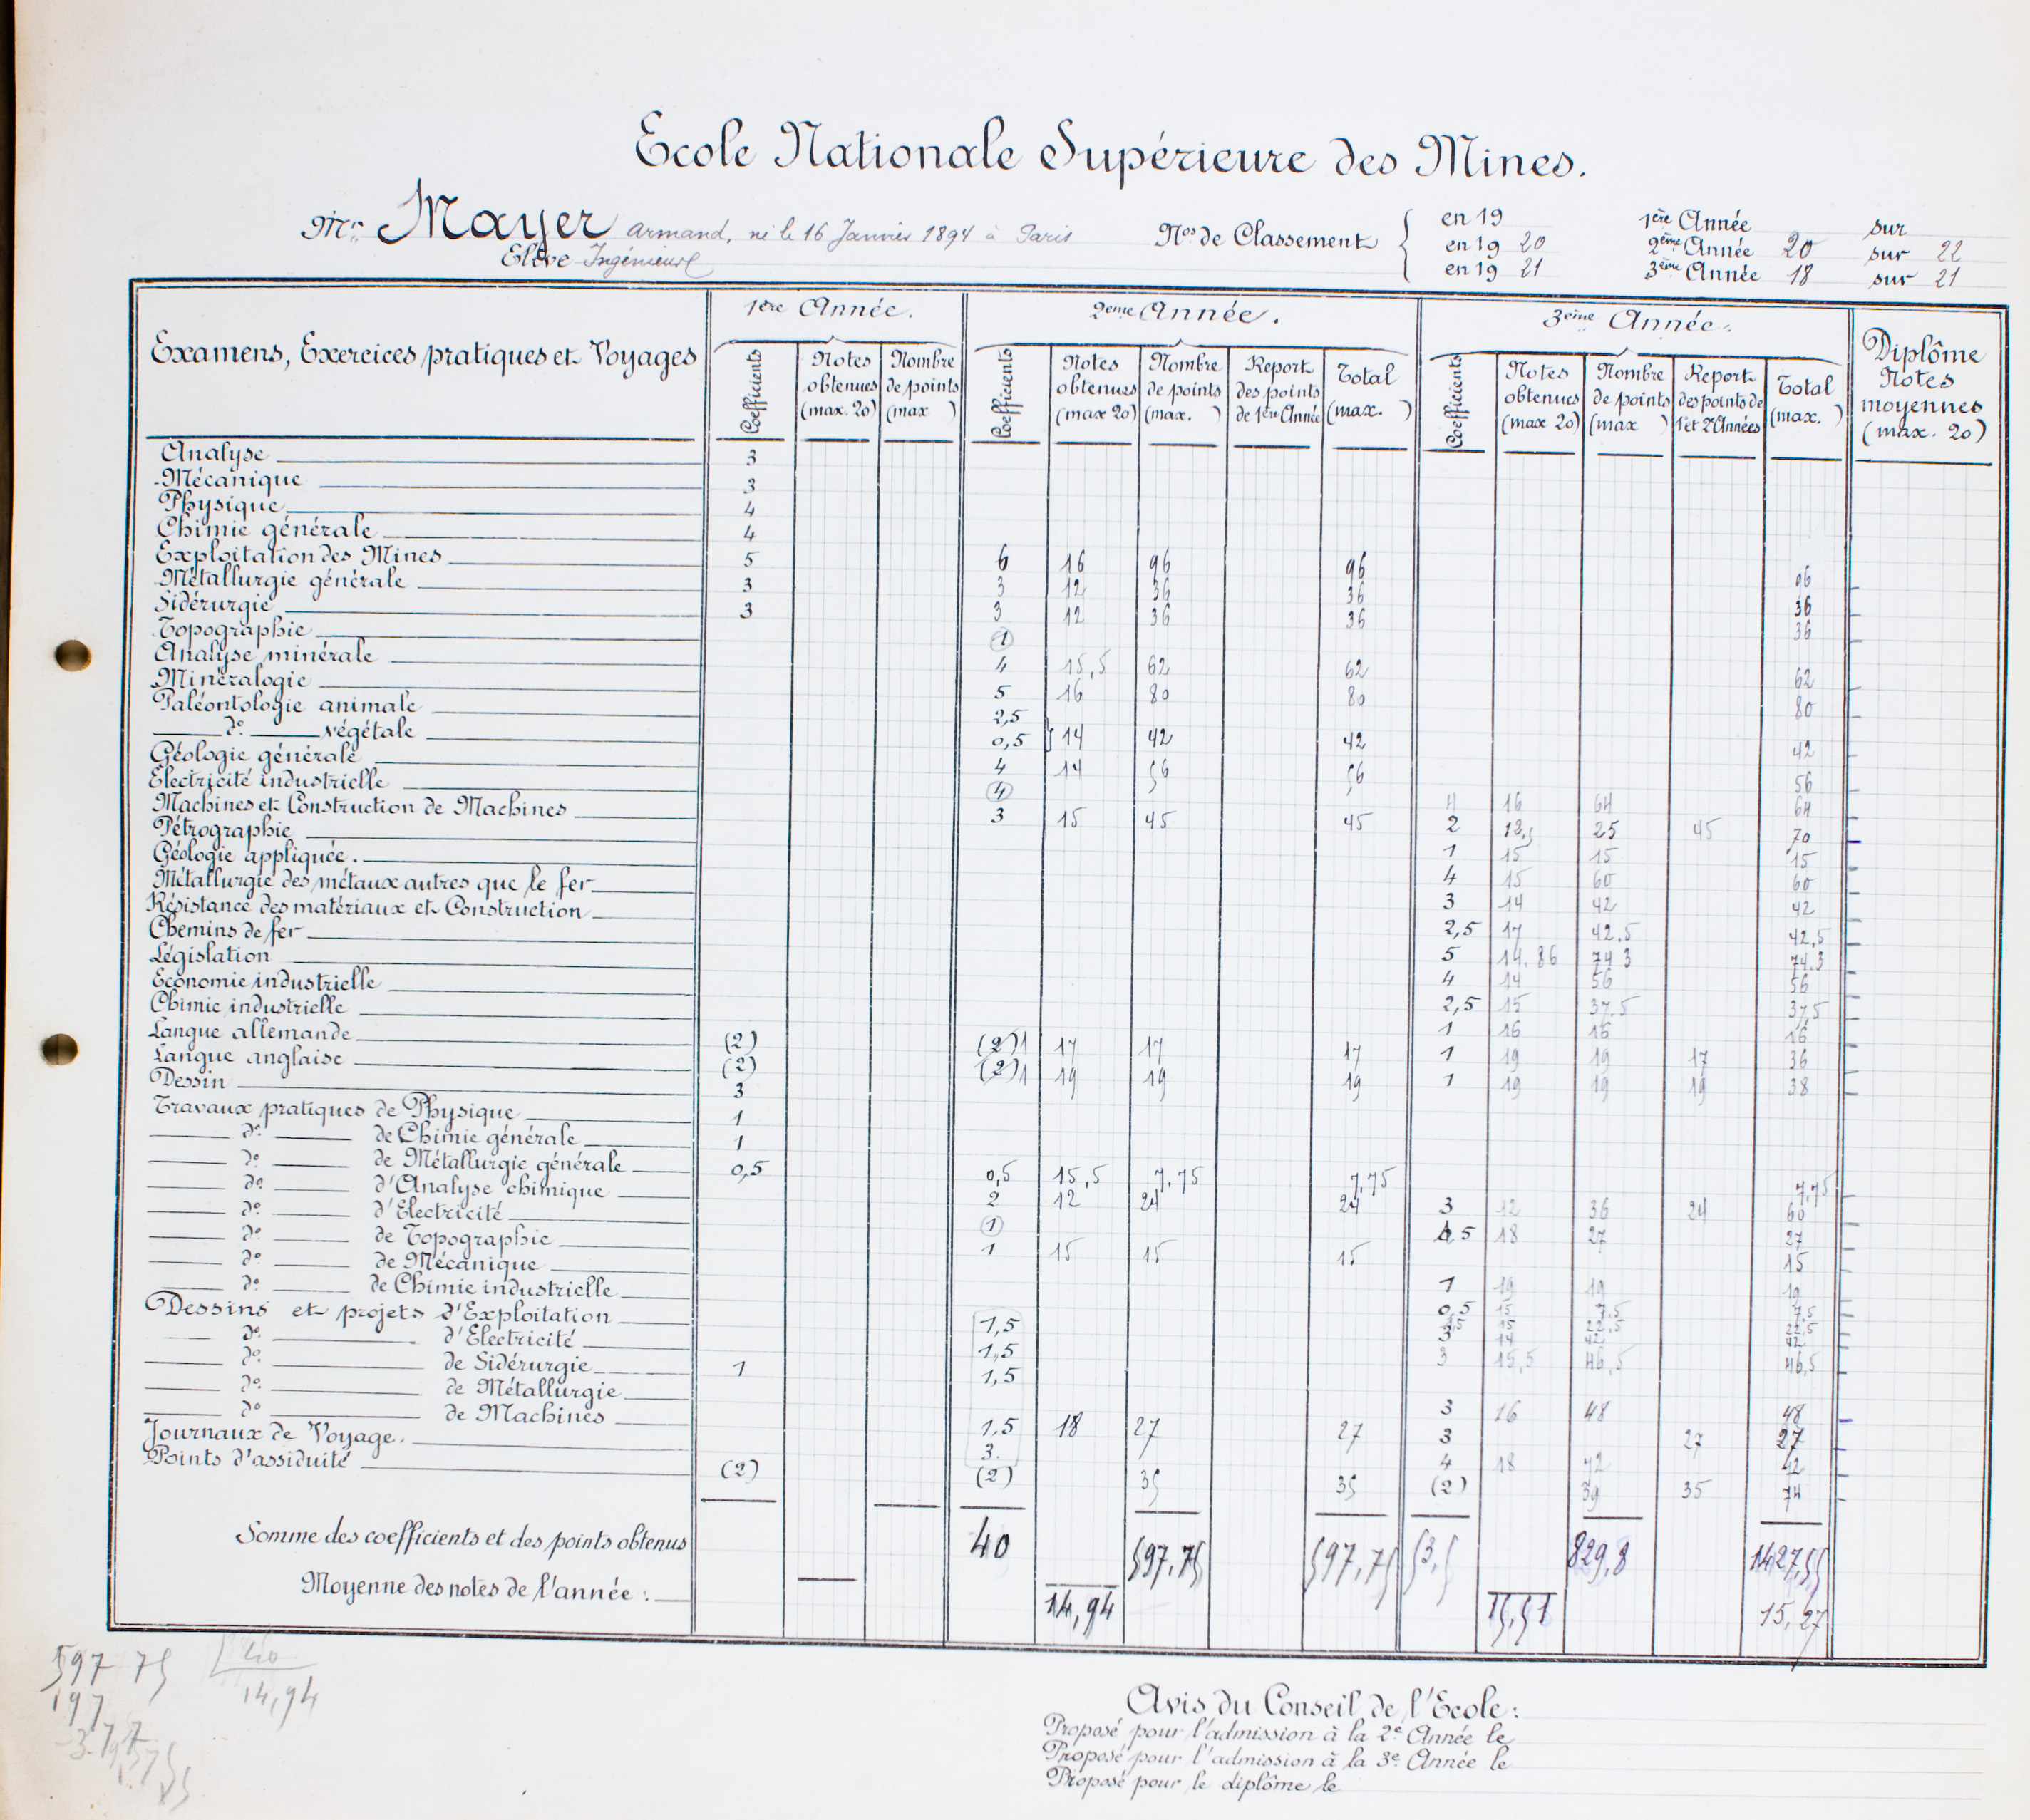 Ecole Nationale Supérieure des Mines.
Mr. Mayer Armand, né le 16 Janvier 1894 à Paris
Elève Ingénieur
Nos de Classement
en 19 1ère Année sur
en 19 20 2ème Année 20 sur 22
en 19 21 3ème Année 18 sur 21
Examens, Exercices pratiques et Voyages
1ère Année. 2ème Année. 3ème Année. Diplôme Notes moyennes (max. 20)
Coefficients Notes obtenues (max. 20) Nombre de points (max )
Coefficients Notes obtenues (max 20) Nombre de points (max. ) Report des points de 1ère Année Total (max. )
Coefficients Notes obtenues (max 20) Nombre de points (max ) Report des points de 1 et 2 Années Total (max. )
Analyse 3
Mécanique 3
Physique 4
Chimie générale 4
Exploitation des Mines 5 6 16 96 96 96
Métallurgie générale 3 3 12 36 36 36
Sidérurgie 3 3 12 36 36 36
Topographie (1)
Analyse minérale 4 15,5 62 62 62
Minéralogie 5 16 80 80 80
Paléontologie animale 2,5
do végétale 0,5 } 14 42 42 42
Géologie générale 4 14 56 56 56
Electricité industrielle (4) 4 16 64 64
Machines et Construction de Machines 3 15 45 45 2 12,5 25 45 70
Pétrographie 1 15 15 15
Géologie appliquée. 4 15 60 60
Métallurgie des métaux autres que le fer 3 14 42 42
Résistance des matériaux et Construction 2,5 17 42,5 42,5
Chemins de fer 5 14,86 74,3 74,3
Législation 4 14 56 56
Economie industrielle 2,5 15 37,5 37,5
Chimie industrielle 1 16 16 16
Langue allemande (2) (2) 1 17 17 17 1 19 19 17 36
Langue anglaise (2) (2) 1 19 19 19 1 19 19 19 38
Dessin 3
Travaux pratiques de Physique 1
do de Chimie générale 1
do de Métallurgie générale 0,5 0,5 15,5 7,75 7,75 7,75
do d'Analyse chimique 2 12 24 24 3 12 36 24 60
do d'Electricité (1) 1,5 18 27 27
do de Topographie 1 15 15 15 15
do de Mécanique 1 19 19 19
do de Chimie industrielle 0,5 15 7,5 7,5
Dessins et projets d'Exploitation 1,5 15 22,5 22,5
do d'Electricité 1,5 3 14 42 42
do de Sidérurgie 1 1,5 3 15,5 46,5 46,5
do de Métallurgie
do de Machines 1,5 18 27 27 3 16 48 48
3 27 27
Journaux de Voyage. 3. 4 18 72
Points d'assiduité (2) (2) 35 35 (2) 39 35 74
Somme des coefficients et des points obtenus 40 597,75 597,75 53,5 829,8 1427,55
Moyenne des notes de l'année : 14,94 15,51 15,27
597 75 40
197 14,94
Avis du Conseil de l'Ecole :
Proposé pour l'admission à la 2e Année le
Proposé pour l'admission à la 3e Année le
Proposé pour le diplôme le